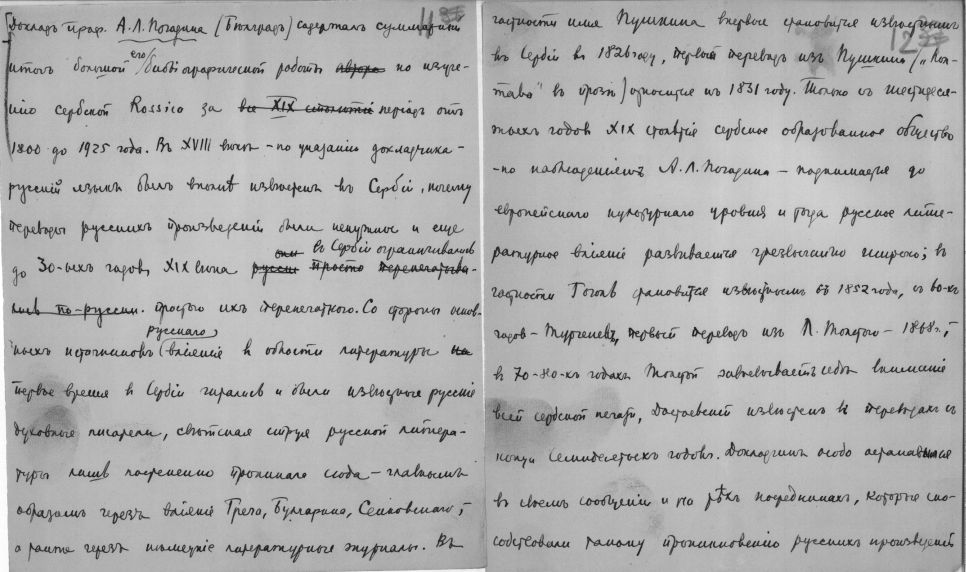 Докладъ проф. А.Л. Погодина (Бѣлградъ) содержалъ суммарный
итогъ большой его библіографической работы автора по изуче-
нію сербской Rossica за все XIX столѣтіе періодъ отъ
1800 до 1925 года. Въ XVIII вѣкѣ – по указанію докладчика –
русскій языкъ былъ вполнѣ извѣстенъ въ Сербіи, почему
переводы русскихъ произведеній были ненужны и еще
до 30-ыхъ годовъ XIX вѣка они въ Сербіи ограничивались
русскія просто перепечатыва-
лись по-русски. простою ихъ перепечаткою. Со стороны основ-
ныхъ источниковъ русскаго вліянія въ области литературы на
первое время въ Сербіи являлись и были извѣстны русскіе
духовные писатели, свѣтская струя русской литера-
туры лишь постепенно проникала сюда – главнымъ
образомъ черезъ вліяніе Греча, Булгарина, Сенковскаго,
а также черезъ нѣмецкіе литературные журналы. Въ
12
частности имя Пушкина впервые становится извѣстнымъ
въ Сербіи въ 1826 году, первый переводъ изъ Пушкина („Пол-
тава" въ прозѣ) относится къ 1831 году. Только съ шестидеся-
тыхъ годовъ XIX столѣтія сербское образованное общество
– по наблюденіямъ А.Л. Погодина – поднимается до
европейскаго культурнаго уровня и тогда русское лите-
ратурное вліяніе развивается чрезвычайно широко; въ
частности Гоголь становится извѣстнымъ съ 1852 года, съ 60-хъ
годовъ – Тургеневъ, первый переводъ изъ Л. Толстого – 1868 г.,
въ 70-80-хъ годахъ Толстой завоевываетъ себѣ вниманіе
всей сербской печати, Достоевскій извѣстенъ въ переводахъ съ
конца семидесятыхъ годовъ. Докладчикъ особо остановился
въ своемъ сообщеніи и на тѣхъ посредникахъ, которые спо-
собствовали такому проникновенію русскихъ произведеній